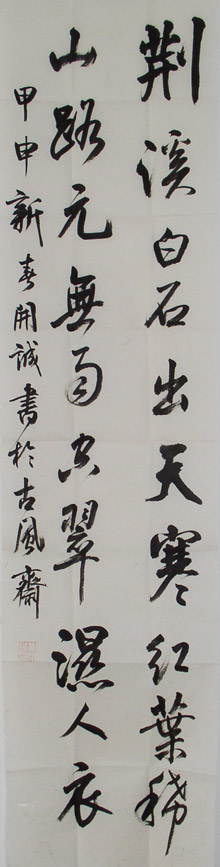 荆溪白石出天寒红葉稀
山路元無雨空翠濕人衣
甲申新春開誠書於古風齋